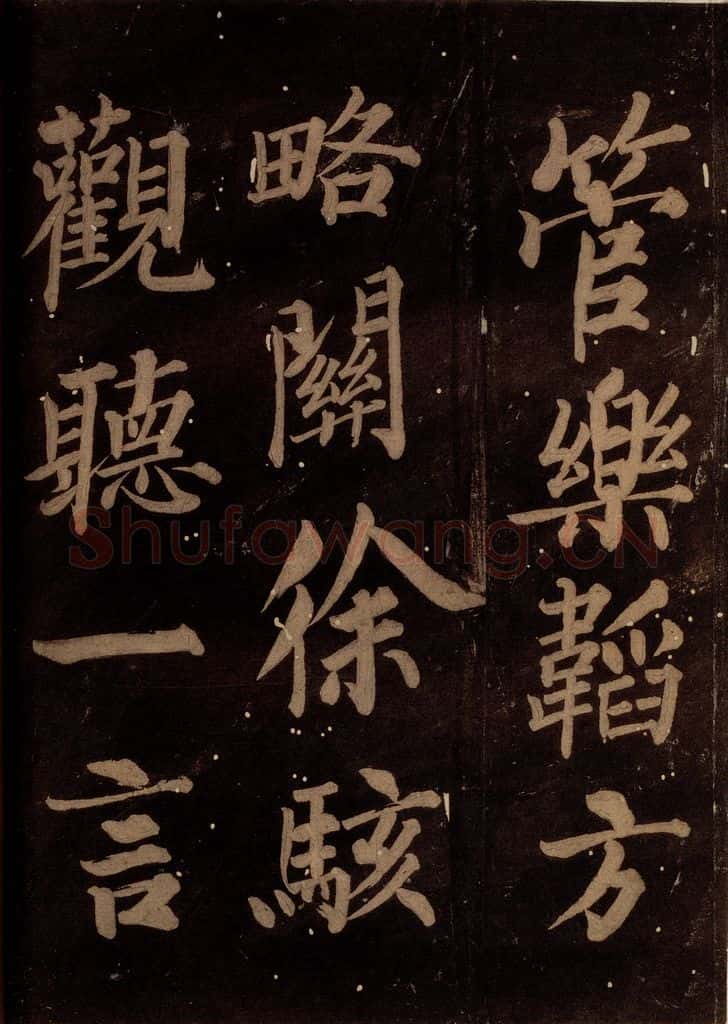 管樂韜方
略關徐駭
觀聽一言
Shufawang.CN